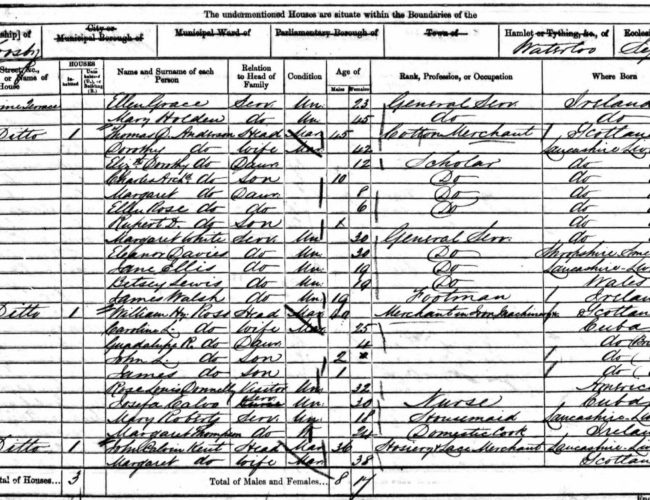 The undermentioned Houses are situate within the Boundaries of the
ship] of City or Municipal Borough of Municipal Ward of Parliamentary Borough of Town of Hamlet or Tything, &c., of Ecclesi
Crosby Waterloo
HOUSES
Street, No., or Name of House In-habited Unin-habited (U.), or Building (B.) Name and Surname of each Person Relation to Head of Family Condition Age of Males Females Rank, Profession, or Occupation Where Born
Ellen Grace Serv. Un 23 General Serv. Ireland
Mary Holden do Un 45 do do
Ditto 1 Thomas D. Anderson Head Mar 45 Cotton Merchant Scotlan
Dorothy do Wife Mar 42 Lancashire Liv
Eliz. Dorothy do Daur 12 Scholar do
Charles Archd. do Son 10 Do do
Margaret do Daur 8 Do do
Ellen Rose do do 6 Do do
Rupert D. do Son 1 do
Margaret White Serv. Un 30 General Serv. do
Eleanor Davies do Un 30 Do Shropshire
Jane Ellis do Un 19 Do Lancashire Liv
Betsey Lewis do Un 19 Do Wales
James Walsh do Un 19 Footman Irelan
Ditto 1 William Hy. Rose Head Mar Merchant in Scotlan
Caroline L. do Wife Mar 25 Cuba
Guadalupe R. do Daur 4 do
John S. do Son 2 do
James do Son 1 do
Rose Lewis Donnelly Visitor Un 32 America
Josefa Calvo Serv Un 30 Nurse Cuba
Mary Roberts Serv. Un 18 Housemaid Lancashire Liv
Margaret Thompson do 24 Domestic Cook Ireland
Ditto 1 John Kent Head Mar 36 Hosiery & Lace Merchant Lancashire Liv
Margaret do Wife Mar 38 Scotlan
Total of Houses... 3 Total of Males and Females... 8 17